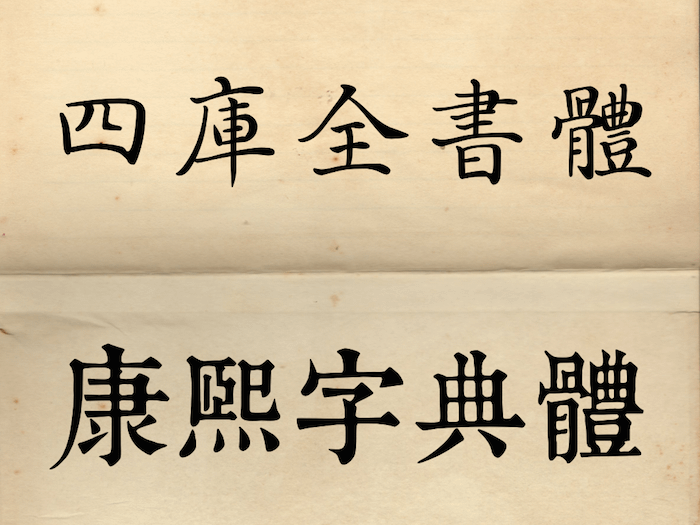 四庫全書體
康熙字典體